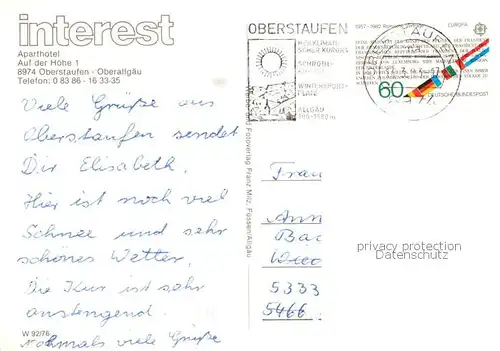 interest
Aparthotel
Auf der Höhe 1
8974 Oberstaufen - Oberallgäu
Telefon: 0 83 86 - 16 33-35
Viele Grüße aus
Oberstaufen sendet
Dir Elisabeth.
Hier ist noch viel
Schnee und sehr
schönes Wetter.
Die Kur ist sehr
anstengend.
Nochmals viele Grüße
W 92/76
Werbe- und Fotoverlag Franz Milz, Füssen/Allgäu
OBERSTAUFEN
SCHROTH-
WINTERSPORT-
PLATZ
ALLGÄU
1957-1982
EUROPA
60
DEUTSCHE BUNDESPOST
Frau
Ann
Bac
5333
5466
privacy protection
Datenschutz